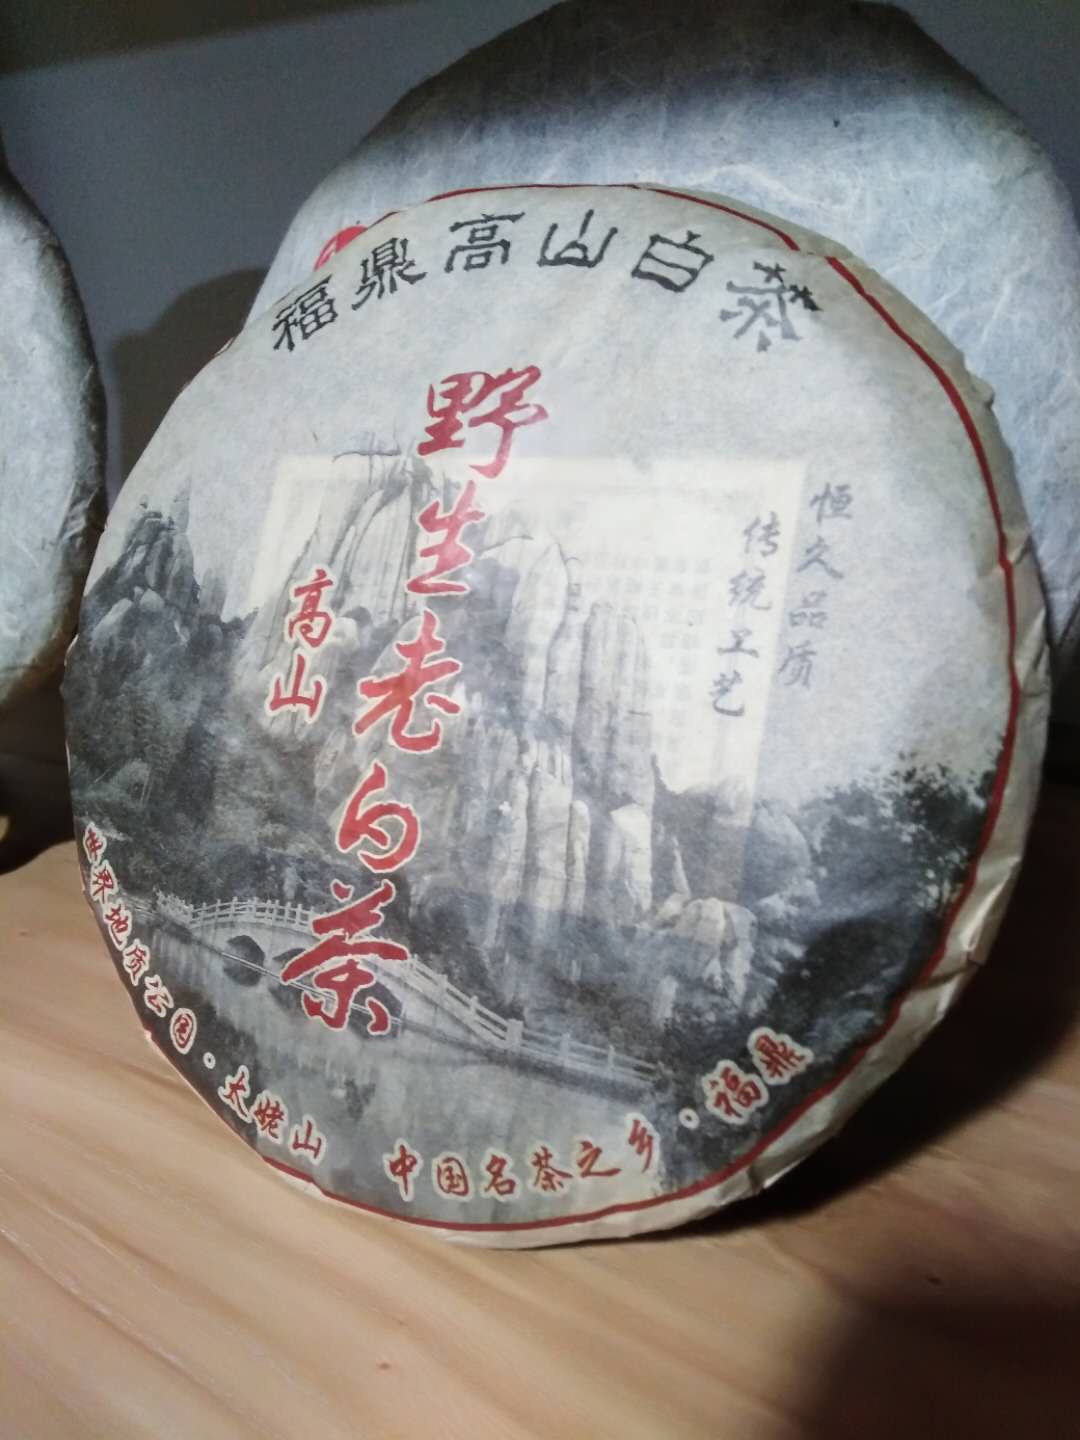 福鼎高山白茶
野生老白茶
高山
恒久品质
传统工艺
世界地质公园·太姥山
中国名茶之乡·福鼎